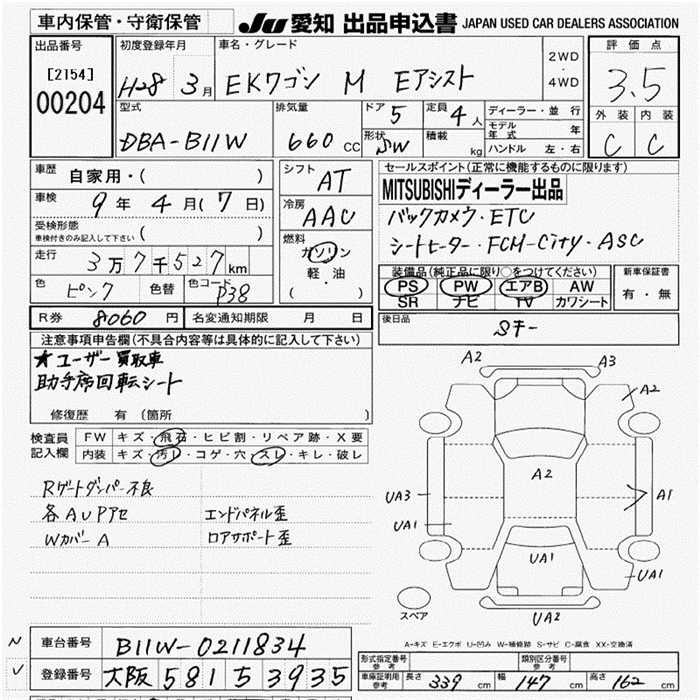 車内保管・守衛保管 JU 愛知 出品申込書 JAPAN USED CAR DEALERS ASSOCIATION
出品番号 初度登録年月 車名・グレード 評価点
[2154] H28 3月 EKワゴン M Eアシスト 2WD・4WD 3.5
00204 型式 排気量 ドア 5 定員 4人 ディーラー・並 行 外装 内装
モデル年式 年
DBA-B11W 660cc 形状 SW 積載 kg ハンドル 左・右 C C
車歴 自家用・( ) シフト AT セールスポイント(正常に機能するものに限ります)
車検 9年4月(7日) 冷房 AAC MITSUBISHIディーラー出品
受検形態 車検付きのみ記入して下さい ( ) バックカメラ・ETC
走行 3万7千527km 燃料 ガソリン 軽・油 ( ) シートヒーター・FCM-City・ASC
色 ピンク 色替 色コード P38 装備品(純正品に限り○をつけてください) 新車保証書
PS PW エアB AW 有・無
SR ナビ TV カワシート
R券 8060円 名変通知期限 月 日 後日品 Sキー
注意事項申告欄(不具合内容等は具体的に記入して下さい)
★ユーザー買取車
助手席回転シート
修復歴 有 (箇所 )
検査員記入欄 FW キズ・飛石・ヒビ割・リペア跡・X要
内装 キズ・汚レ・コゲ・穴・スレ・キレ・破レ
Rゲートダンパー不良
各AUPアセ エンドパネル歪
WカバーA ロアサポート歪
A2 A3
A2
A2
UA3 A1
UA1
UA1 UA1
スペア UA2
A-キズ E-エクボ U-凹み W-補修跡 S-サビ C-腐食 XX-交換済
N 車台番号 B11W-0211834 形式指定番号 参考 類別区分番号 参考
V 登録番号 大阪 581 ち 3935 車庫証明用 参考 長さ 339cm 幅 147cm 高さ 162cm